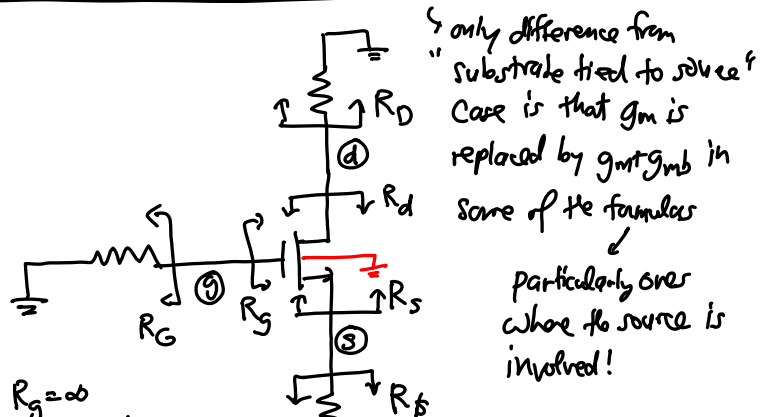 ↳ only difference from
"substrate tied to source"
case is that gm is
replaced by gm+gmb in
some of the formulas
particularly ones
where the source is
involved!
RD
d
Rd
g
RG
Rg
Rs
s
Rg=∞